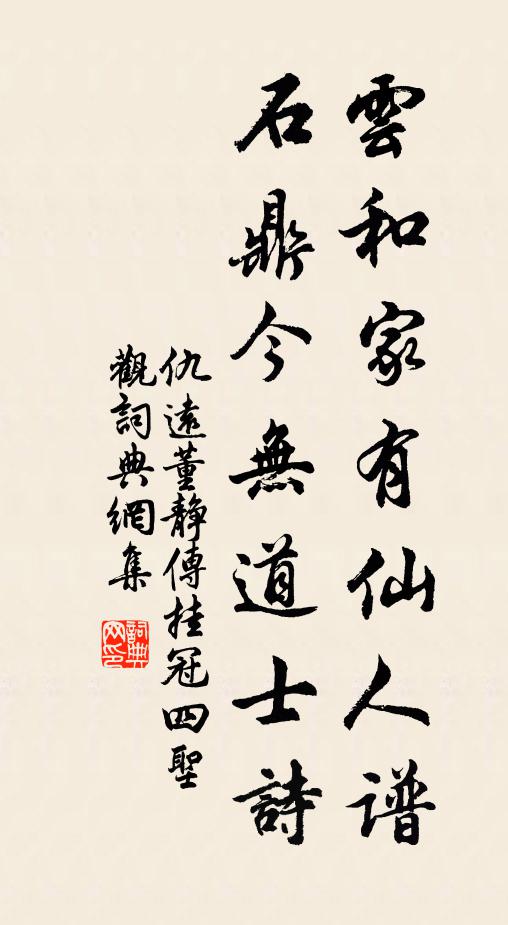 雲和家有仙人谱
石鼎今無道士詩
仇遠董靜傳挂冠四聖
觀詞典網集
詞典网印